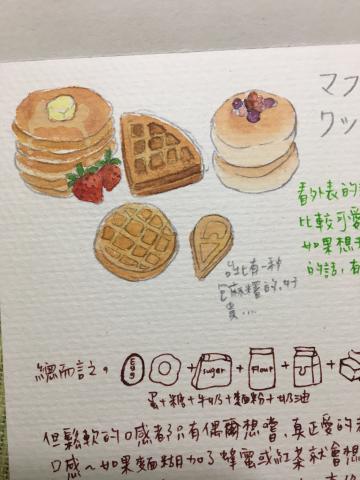 マフ
ワッ
春外表的
比較可愛
如果想
的話,有
台北有一種
包麻糬的,好
貴...
總而言之,
Egg
sugar
flour
蛋+糖+牛奶+麵粉+奶油
但鬆軟的口感都只有偶爾想嚐,真正愛的
口感~如果麵糊加了蜂蜜或紅茶就會想